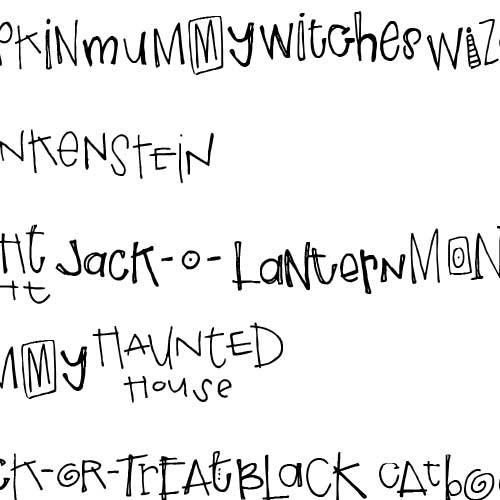 PKiN muMMy witches wiz
NKeNSTEiN
Ht Jack-o-LaNterN MON
Ht
MMy HAUNTED
House
CK-OR-TrEAt BLacK CAt bo